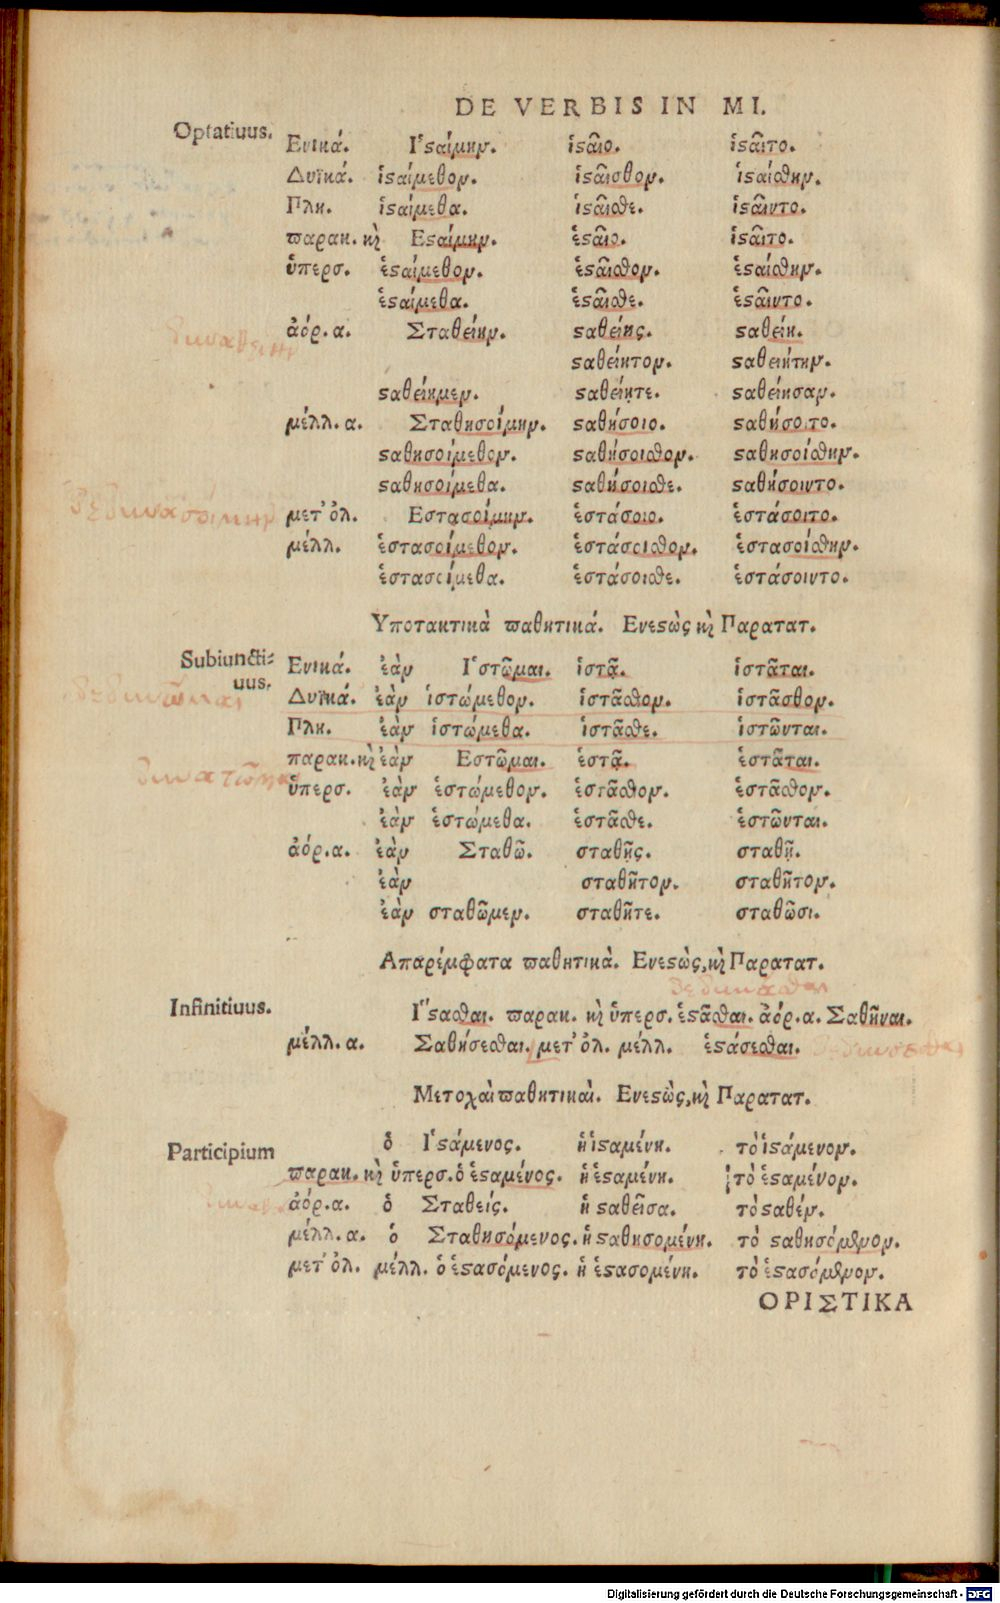 DE VERBIS IN MI.
Optatiuus.
Ενικά. Ι῾ϛαίμην. ἱϛαῖο. ἱϛαῖτο.
Δυϊκά. ἱϛαίμεθον. ἱϛαῖσθον. ἱϛαίσθην.
Πλη. ἱϛαίμεθα. ἱϛαῖσθε. ἱϛαῖντο.
παρακ. καὶ Εϛαίμην. ἑϛαῖο. ἑϛαῖτο.
ὑπερσ. ἑϛαίμεθον. ἑϛαῖσθον. ἑϛαίσθην.
ἑϛαίμεθα. ἑϛαῖσθε. ἑϛαῖντο.
ἀόρ. α. Σταθείην. ϛαθείης. ϛαθείη.
ϛαθείητον. ϛαθειήτην.
ϛαθείημεν. ϛαθείητε. ϛαθείησαν.
μέλλ. α. Σταθησοίμην. ϛαθήσοιο. ϛαθήσοιτο.
ϛαθησοίμεθον. ϛαθήσοισθον. ϛαθησοίσθην.
ϛαθησοίμεθα. ϛαθήσοισθε. ϛαθήσοιντο.
μετ' ὀλ. Εστασοίμην. ἑστάσοιο. ἑστάσοιτο.
μέλλ. ἑστασοίμεθον. ἑστάσοισθον. ἑστασοίσθην.
ἑστασοίμεθα. ἑστάσοισθε. ἑστάσοιντο.
Υποτακτικὰ παθητικά. Ενεϛὼς καὶ Παρατατ.
Subiuncti-
uus.
Ενικά. ἐὰν Ι῾στῶμαι. ἱστᾷ. ἱστᾶται.
Δυϊκά. ἐὰν ἱστώμεθον. ἱστᾶσθον. ἱστᾶσθον.
Πλη. ἐὰν ἱστώμεθα. ἱστᾶσθε. ἱστῶνται.
παρακ. καὶ ἐὰν Εστῶμαι. ἑστᾷ. ἑστᾶται.
ὑπερσ. ἐὰν ἑστώμεθον. ἑστᾶσθον. ἑστᾶσθον.
ἐὰν ἑστώμεθα. ἑστᾶσθε. ἑστῶνται.
ἀόρ. α. ἐὰν Σταθῶ. σταθῇς. σταθῇ.
ἐὰν σταθῆτον. σταθῆτον.
ἐὰν σταθῶμεν. σταθῆτε. σταθῶσι.
Απαρέμφατα παθητικὰ. Ενεϛὼς, καὶ Παρατατ.
Infinitiuus.
Ι῞ϛασθαι. παρακ. καὶ ὑπερσ. ἑϛᾶσθαι. ἀόρ. α. Σαθῆναι.
μέλλ. α. Σαθήσεσθαι. μετ' ὀλ. μέλλ. ἑϛάσεσθαι.
Μετοχαὶ παθητικαὶ. Ενεϛὼς, καὶ Παρατατ.
Participium
ὁ Ι῾ϛάμενος. ἡ ἱϛαμένη. τὸ ἱϛάμενον.
παρακ. καὶ ὑπερσ. ὁ ἑϛαμένος. ἡ ἑϛαμένη. τὸ ἑϛαμένον.
ἀόρ. α. ὁ Σταθείς. ἡ ϛαθεῖσα. τὸ ϛαθέν.
μέλλ. α. ὁ Σταθησόμενος. ἡ ϛαθησομένη. τὸ ϛαθησόμενον.
μετ' ὀλ. μέλλ. ὁ ἑϛασόμενος. ἡ ἑϛασομένη. τὸ ἑϛασόμενον.
ΟΡΙΣΤΙΚΑ
Digitalisierung gefördert durch die Deutsche Forschungsgemeinschaft - DFG